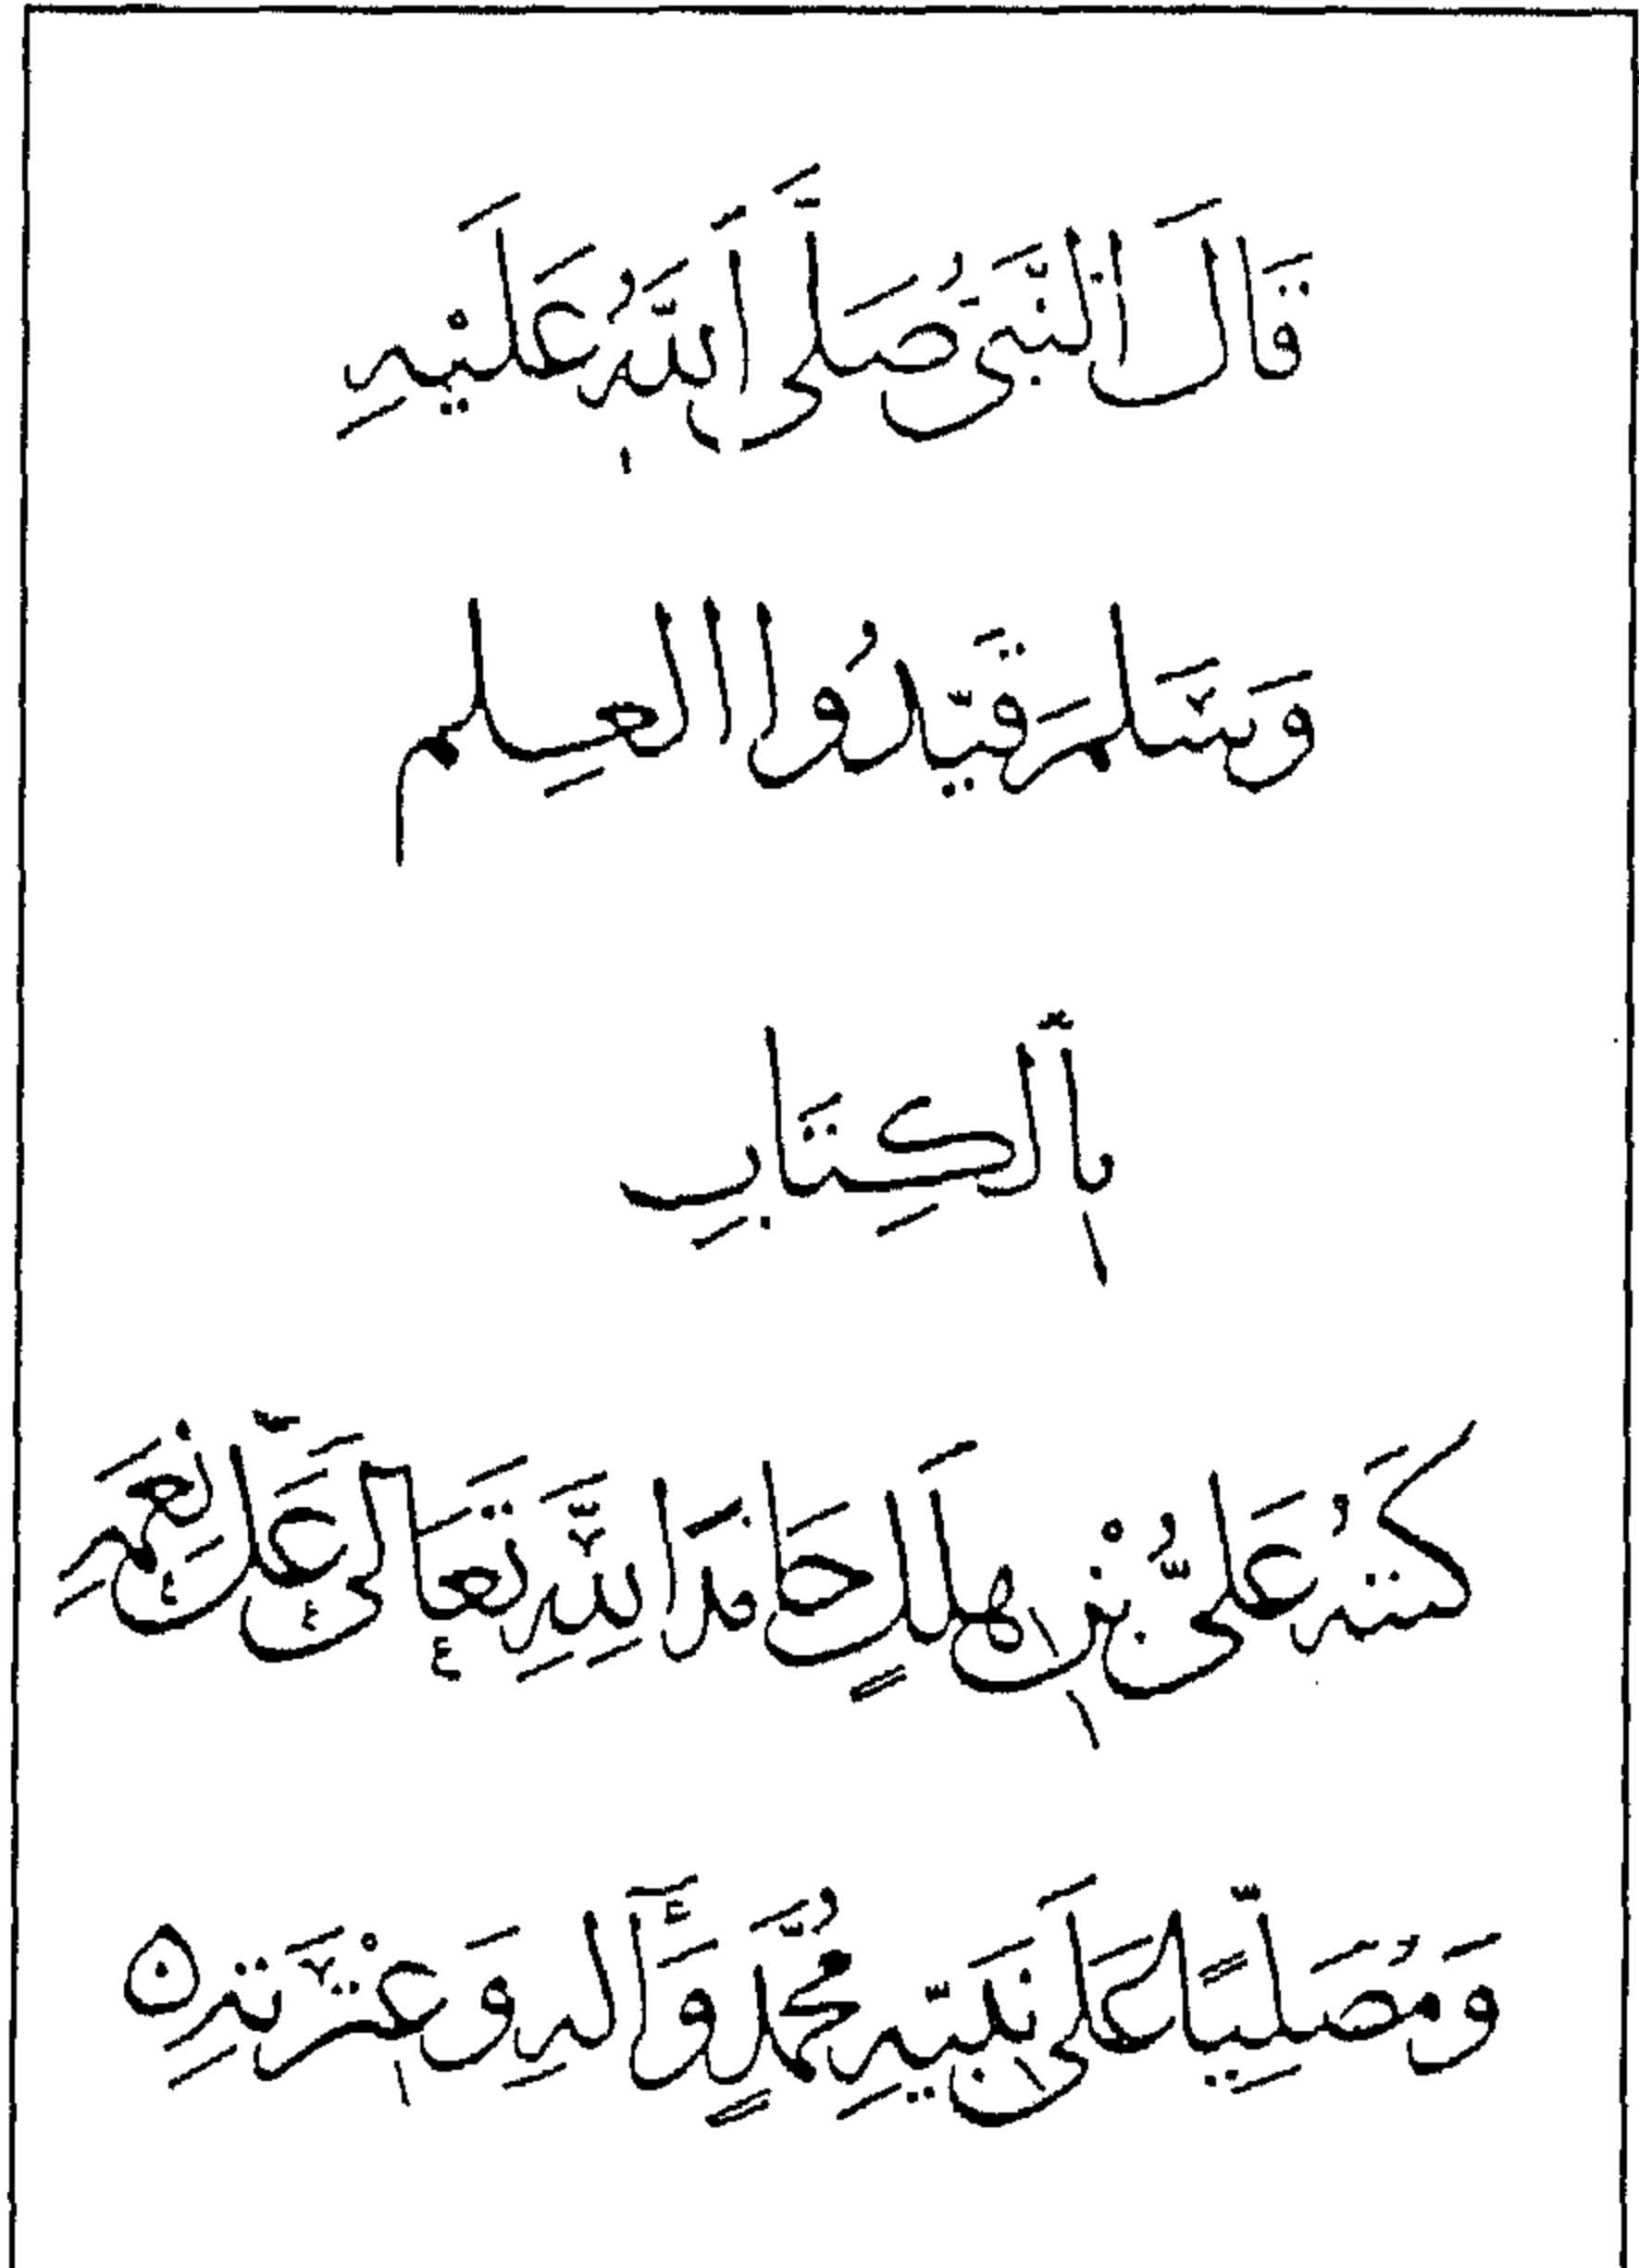 قَالَ النَّبِىُّ صَلَّى اَللّٰهُ عَلَيْهِ
وَسَلَّمَ قَيِّدُوا العِلم
بِالكِتَابِ
كَتَبَهُ عَلىُّ بْنُ هِلَالٍ حَامِدًا لِلّٰهِ تَعَالَى عَلَى نِعَمِهِ
وَمُصَلِّيًا عَلَى نَبِيِّهِ مُحَمَّدٍ وَّاٰلِهِ وَعِتْرَتِهِ ه